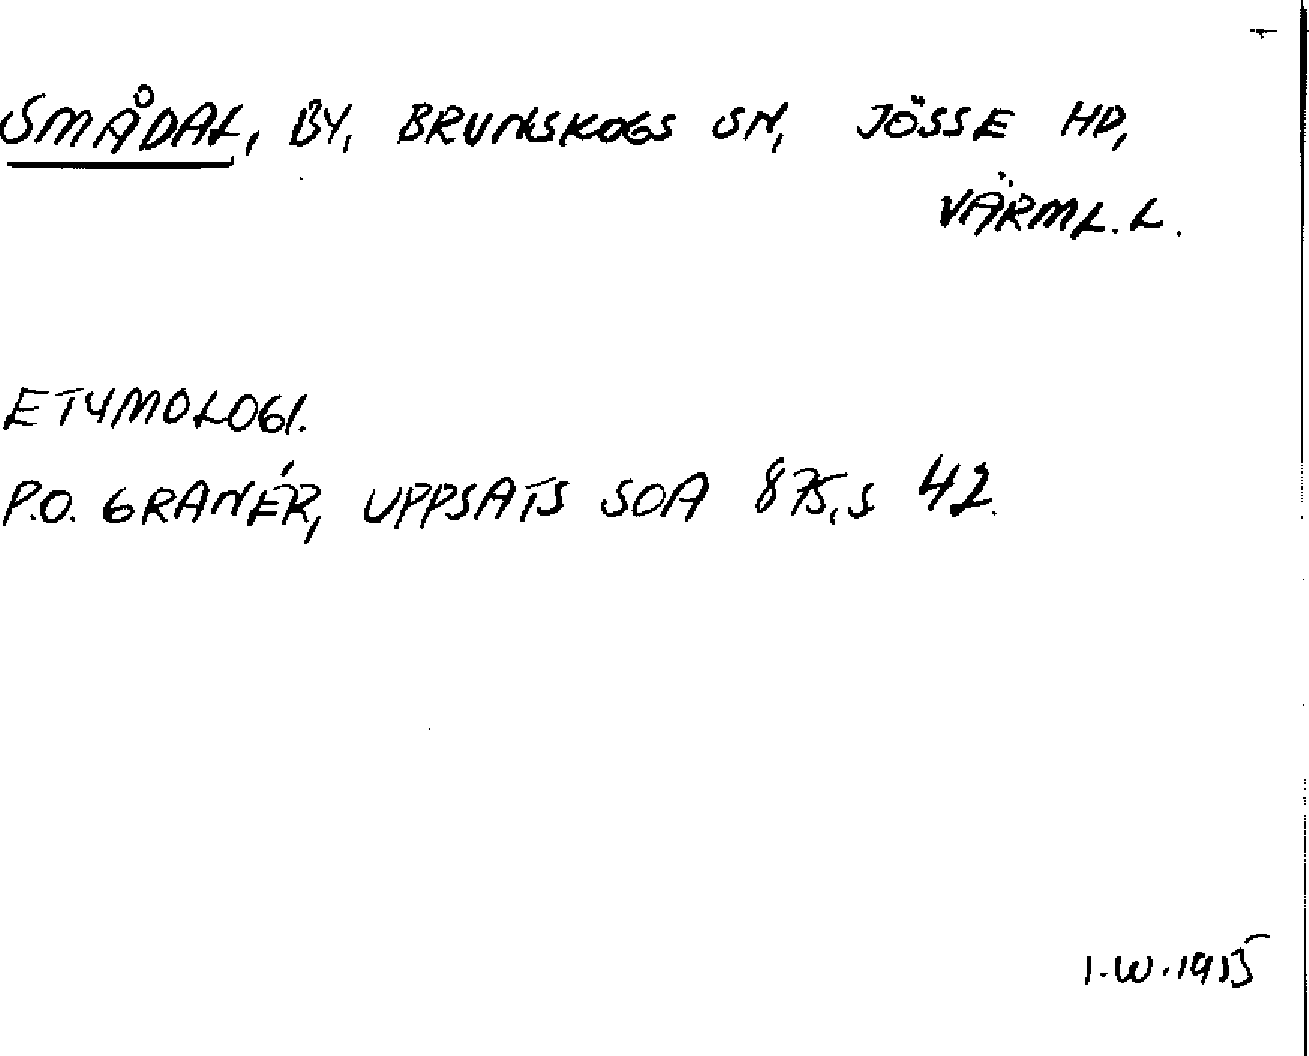 SMÅDAL, BY, BRUNSKOGS SN, JÖSSE HD,
VÄRML. L.
ETYMOLOGI.
P.O. GRANÉR, UPPSATS SOA 875, S 42.
I.W.